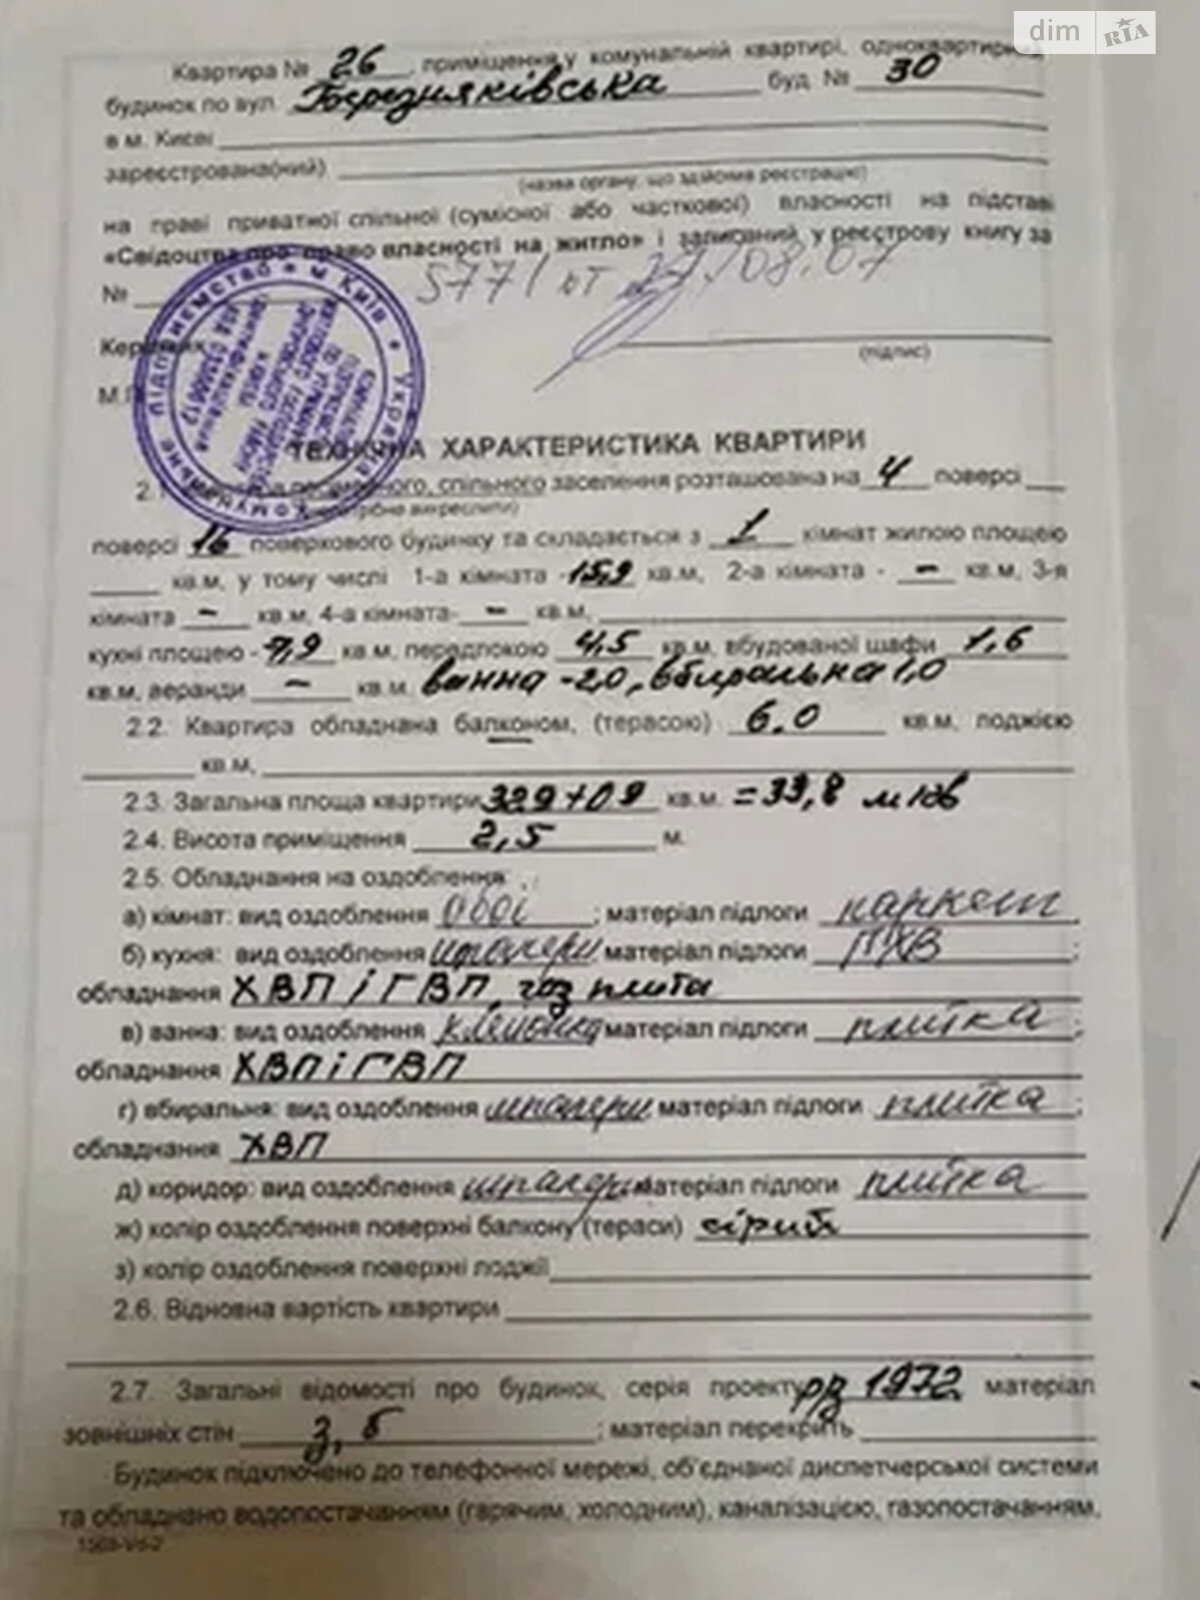 dim RIA
Квартира № 26, приміщення у комунальній квартирі, одноквартирн
будинок по вул. Березняківська буд. № 30
в м. Києві
зареєстрована(ний)
(назва органу, що здійснює реєстрацію)
на праві приватної спільної (сумісної або часткової) власності на підставі
«Свідоцтва про право власності на житло» і записаний у реєстрову книгу за
№ 5771 от 27/08.07
Керівник
(підпис)
М.П.
ТЕХНІЧНА ХАРАКТЕРИСТИКА КВАРТИРИ
2.1. спільного заселення розташована на 4 поверсі
(непотрібне викреслити)
поверсі 16 поверхового будинку та складається з 1 кімнат жилою площею
кв.м, у тому числі 1-а кімната - 15,9 кв.м, 2-а кімната - – кв.м, 3-я
кімната – кв.м, 4-а кімната- – кв.м,
кухні площею - 7,9 кв.м, передпокою 4,5 кв.м, вбудованої шафи 1,6
кв.м, веранди – кв.м. ванна -2,0, вбиральна 1,0
2.2. Квартира обладнана балконом, (терасою) 6.0 кв.м, лоджією
кв.м,
2.3. Загальна площа квартири 32,9+0,9 кв.м. =33,8 м кв
2.4. Висота приміщення 2,5 м.
2.5. Обладнання на оздоблення:
а) кімнат: вид оздоблення обої; матеріал підлоги паркет,
б) кухня: вид оздоблення шпалери матеріал підлоги ПХВ;
обладнання ХВП і ГВП, газ плита
в) ванна: вид оздоблення клейонка матеріал підлоги плитка;
обладнання ХВП і ГВП
г) вбиральня: вид оздоблення шпалери матеріал підлоги плитка;
обладнання ХВП
д) коридор: вид оздоблення шпалери матеріал підлоги плитка
ж) колір оздоблення поверхні балкону (тераси) сірий
з) колір оздоблення поверхні лоджії
2.6. Відновна вартість квартири
2.7. Загальні відомості про будинок, серія проекту 1972 матеріал
зовнішніх стін з, б; матеріал перекрить
Будинок підключено до телефонної мережі, об'єднаної диспетчерської системи
та обладнано водопостачанням (гарячим, холодним), каналізацією, газопостачанням,